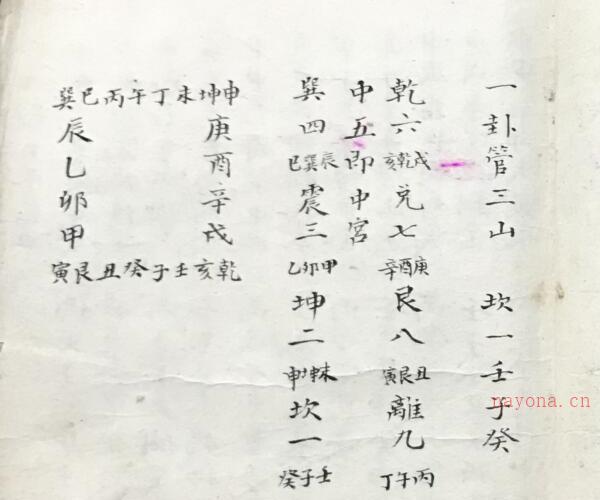 一卦管三山 坎一壬子癸
乾六戌乾亥兌七庚酉辛艮八丑艮寅離九丙午丁
中五即中宮
巽四辰巽巳震三甲卯乙坤二未坤申坎一壬子癸
巽巳丙午丁未坤申
辰 庚
乙 酉
卯 辛
甲 戌
寅艮丑癸子壬亥乾
nayona.cn